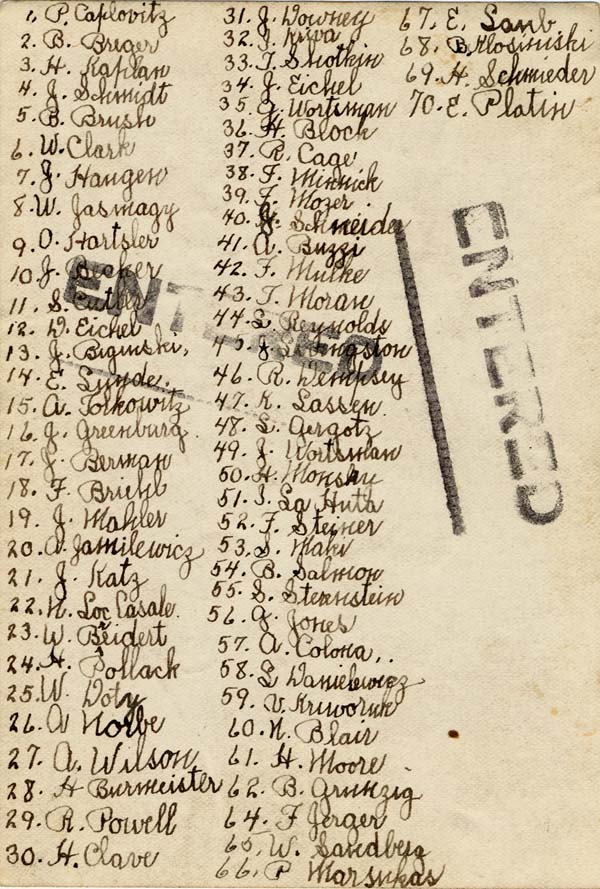 1. P. Caplovitz
2. B. Breger
3. H. Kaplan
4. J. Schmidt
5. B. Brush
6. W. Clark
7. J. Haugen
8. W. Jasmagy
9. O. Hartsler
10. J. Becher
11. S. Cutler
12. D. Eichel
13. J. Biginski,
14. E. Lynde.
15. A. Tolkowitz
16. J. Greenburg
17. J. Berman
18. F. Briehl
19. J. Mahler
20. A. Jamilewicz
21. J. Katz
22. N. Loc Casale
23. W. Breidert
24. H. Pollack
25. W. Doty
26. A Nolbe
27. A. Wilson
28. H Burmeister
29. R. Powell
30. H. Clave
31. J. Downey
32. J. Kriva
33. T. Shotkin
34. J. Eichel
35. G. Wortsman
36. H. Block
37. R. Cage
38. F. Minnick
39. F. Mozer
40. J. Schneider
41. A. Buzzi
42. F. Mulhe
43. T. Moran
44. L. Reynolds
45. J. Livingston
46. R. Dempsey
47. K. Lassen
48. L. Gergotz
49. J. Wortsman
50. H. Monsky
51. I. La Huta
52. F. Steiner
53. S. Mahr
54. B. Salmon
55. S. Sternstein
56. G. Jones
57. A. Colona,.
58. L Danielewicz
59. V. Kriworuk
60. N. Blair
61. H. Moore
62. B. Grunzig
64. F Jerger
65. W. Sandberg
66. P Marsukas
67. E. Sanb
68. B. Klosiniski
69. H. Schmieder
70. E. Platin
ENTERED
ENTERED